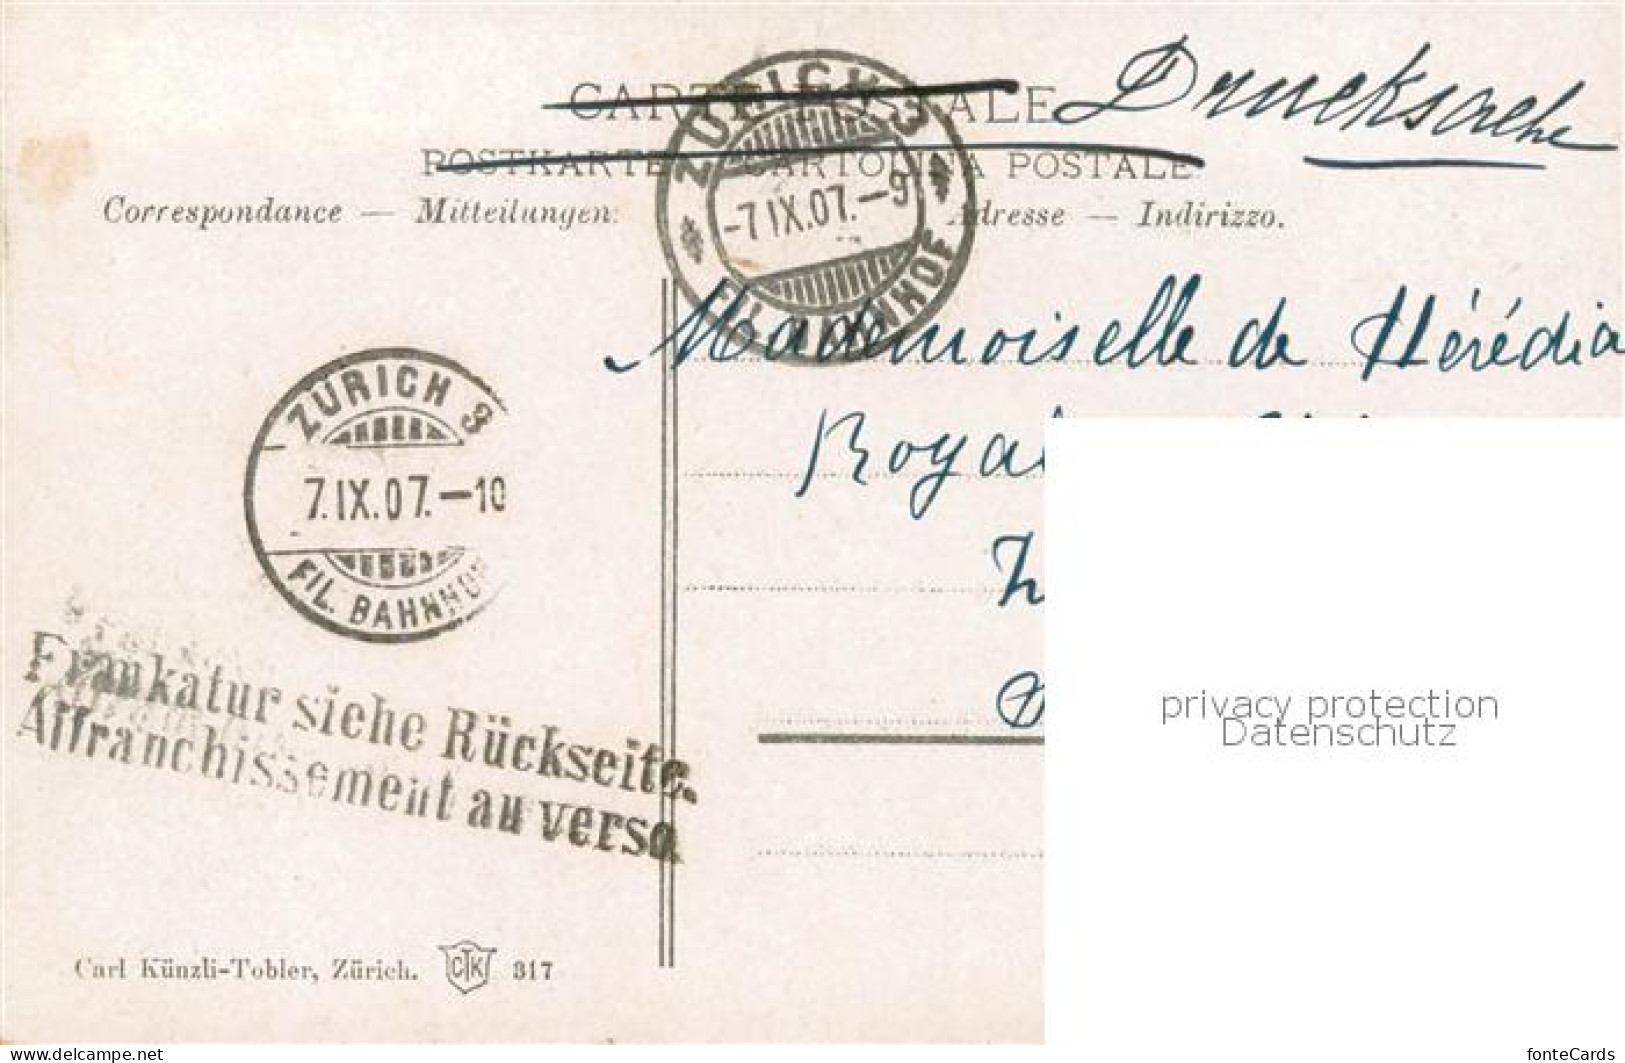 CARTE POSTALE Drucksache
POSTKARTE CARTOLINA POSTALE
Correspondance — Mitteilungen: Adresse — Indirizzo.
ZÜRICH 3
-7.IX.07.-9
FIL. BAHNHOF
Mademoiselle de Hérédia
ZÜRICH 3
7.IX.07.-10
FIL. BAHNHOF
Frankatur siehe Rückseite.
Affranchissement au verso.
privacy protection
Datenschutz
Carl Künzli-Tobler, Zürich. CTK 317
www.delcampe.net
fonteCards